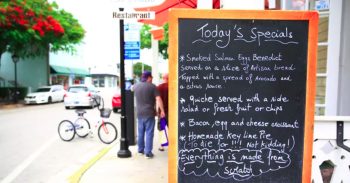 Restaurant
Today's Specials
* Smoked Salmon Eggs Benedict
Served on a slice of Artisan bread
topped with a spread of Avocado and
a citrus sauce
* Quiche served with a side
salad or fresh fruit or chips
* Bacon, egg and cheese croissant
* Homemade Key Lime Pie
(To die for!!! Not kidding!)
Everything is made from
Scratch